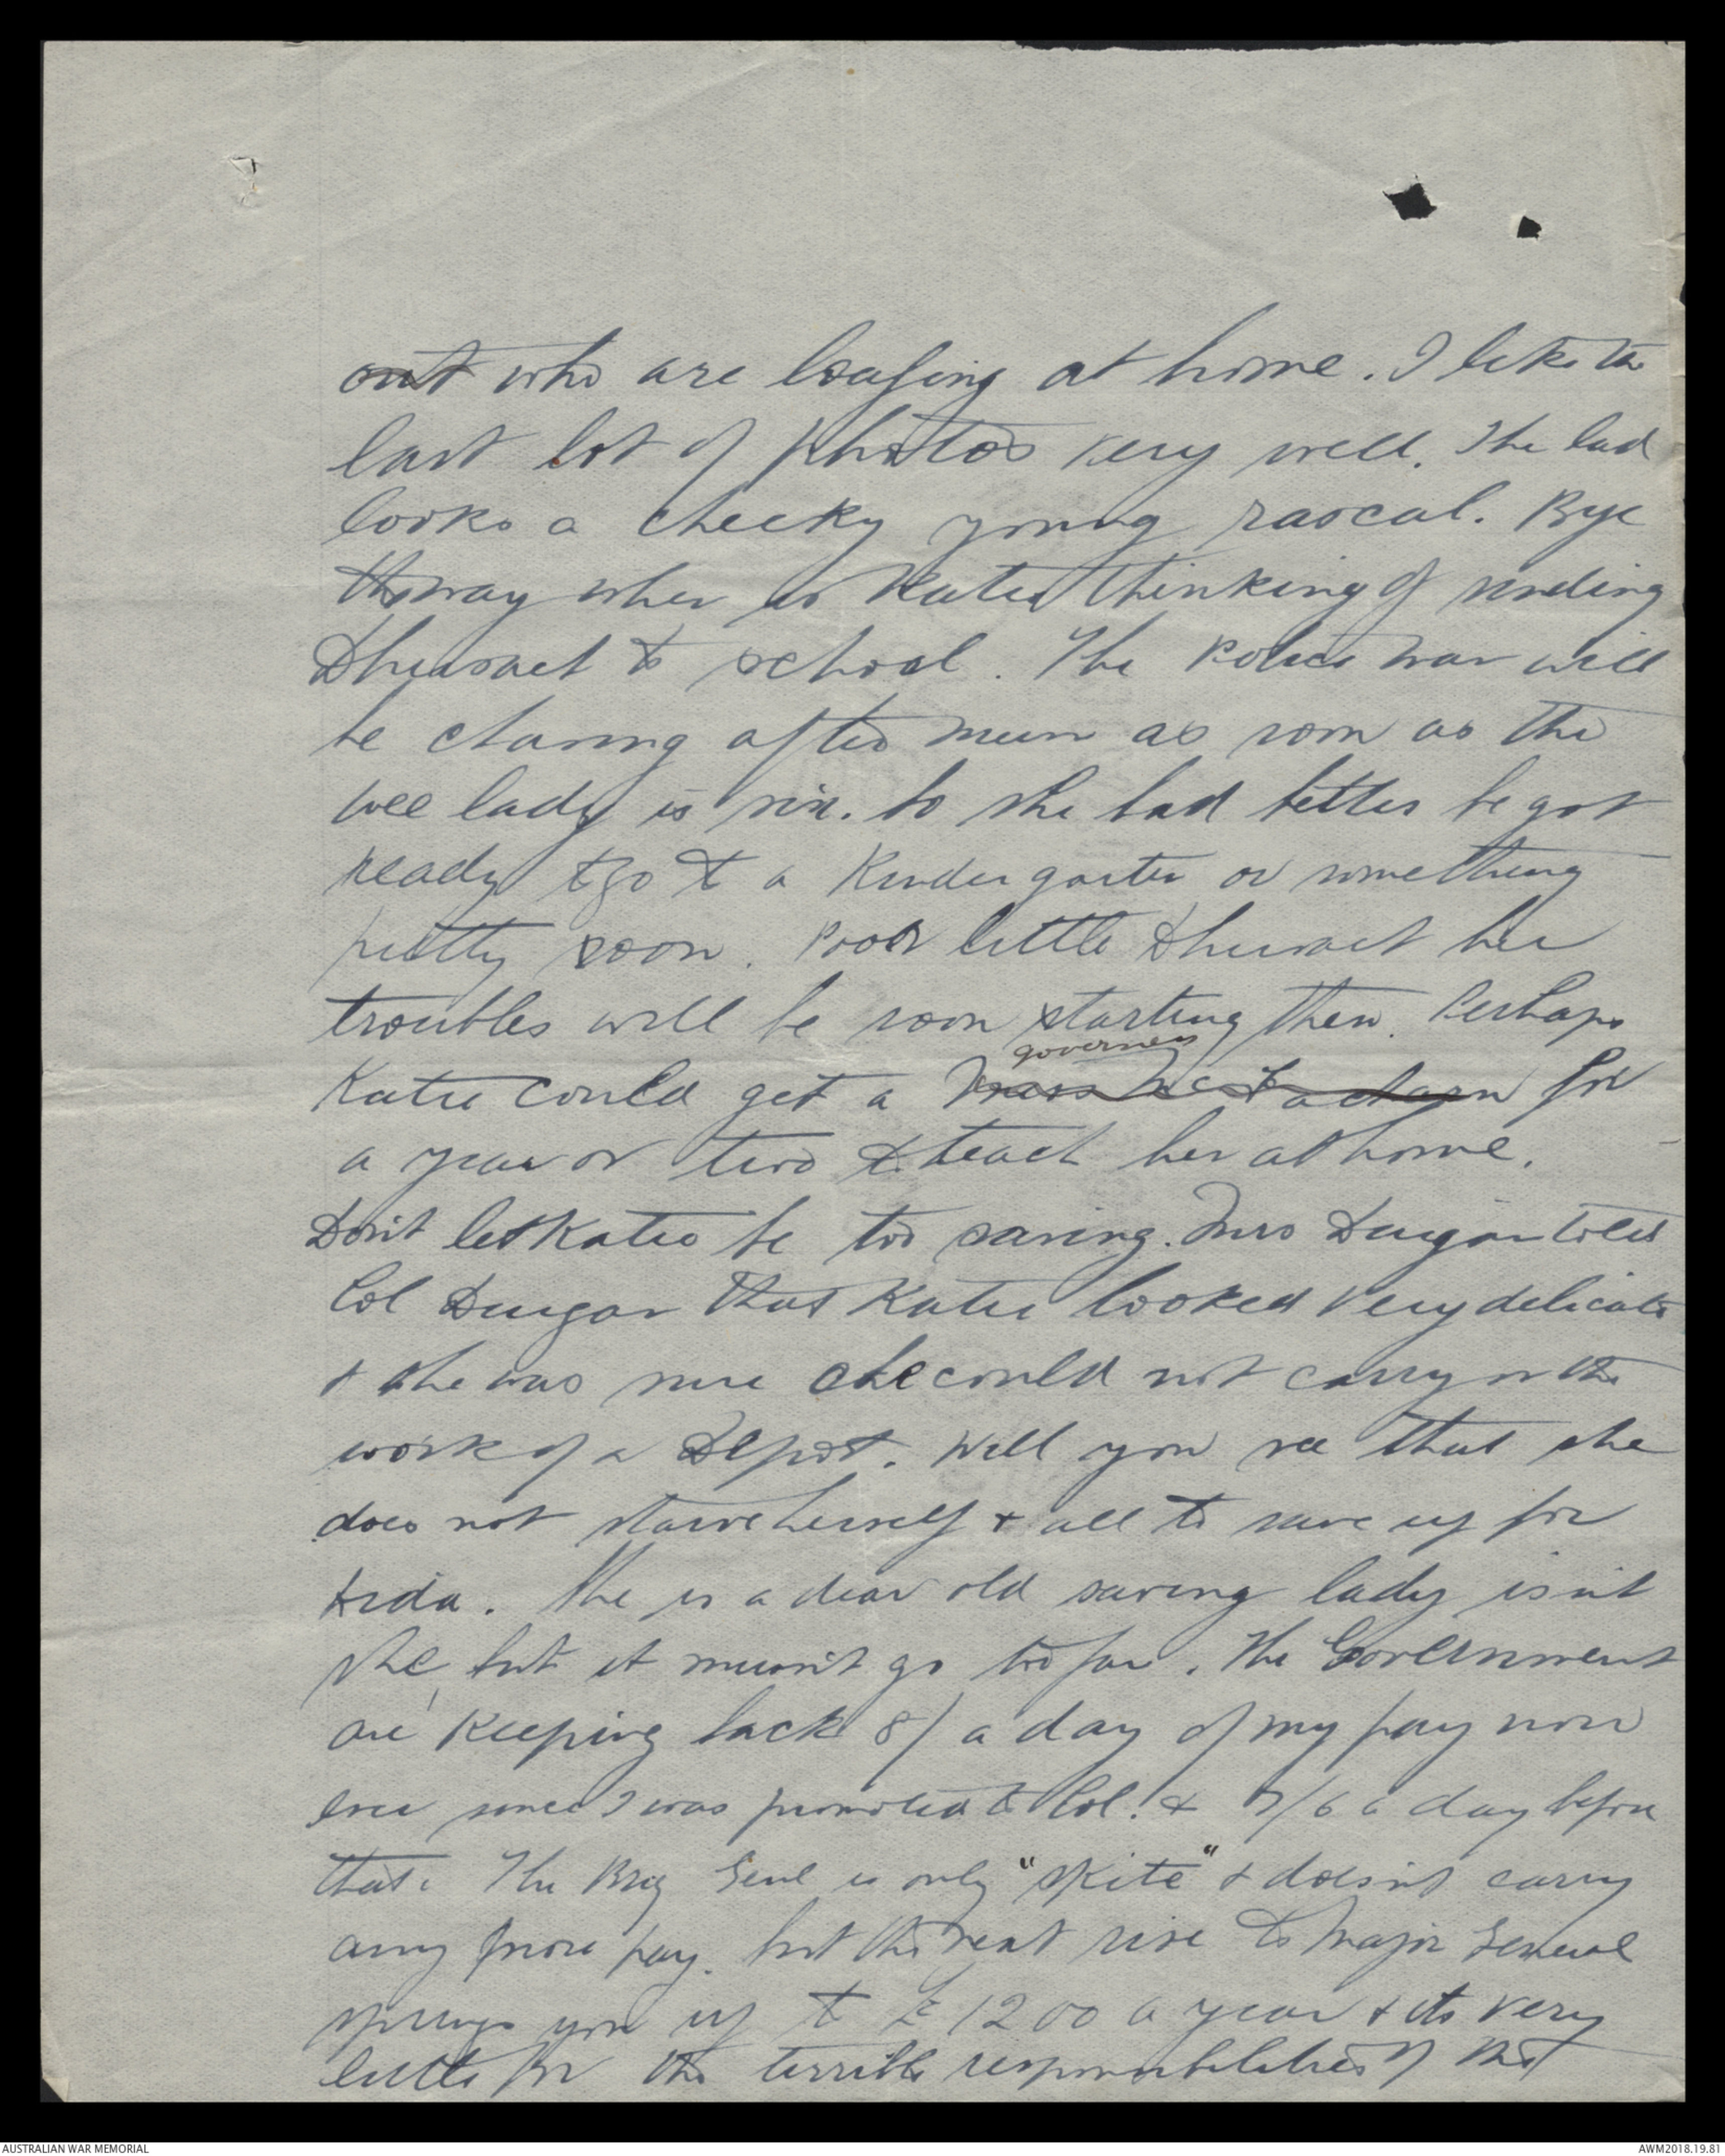 out who are loafing at home. I like the
last lot of photos very well. The lad
looks a cheeky young rascal. Bye
the way when is Katie thinking of sending
to school. The Police man will
be chasing after mum as soon as the
wee lady is six. So she had better be got
ready to go to a Kindergarten or something
pretty soon. Poor little her
troubles will be soon starting then. Perhaps
governess
Katie could get a for
a year or two & teach her at home.
Don't let Katie be too saving. Mrs Duigan told
Col Duigan that Katie looked very delicate
& she was sure she could not carry on the
work of a Depot. Will you see that she
does not starve herself & all to save up for
. She is a dear old saving lady isn't
she, but it mussn't go too far. The Government
are keeping back 8/ a day of my pay now
ever since I was promoted to Col. & 7/6 a day before
that. The Brig Genl is only "skite" & doesn't carry
any more pay. but the next rise to Major General
springs you up to £1200 a year & its very
little for the terrible responsibilities of that
AUSTRALIAN WAR MEMORIAL
AWM2018.19.81